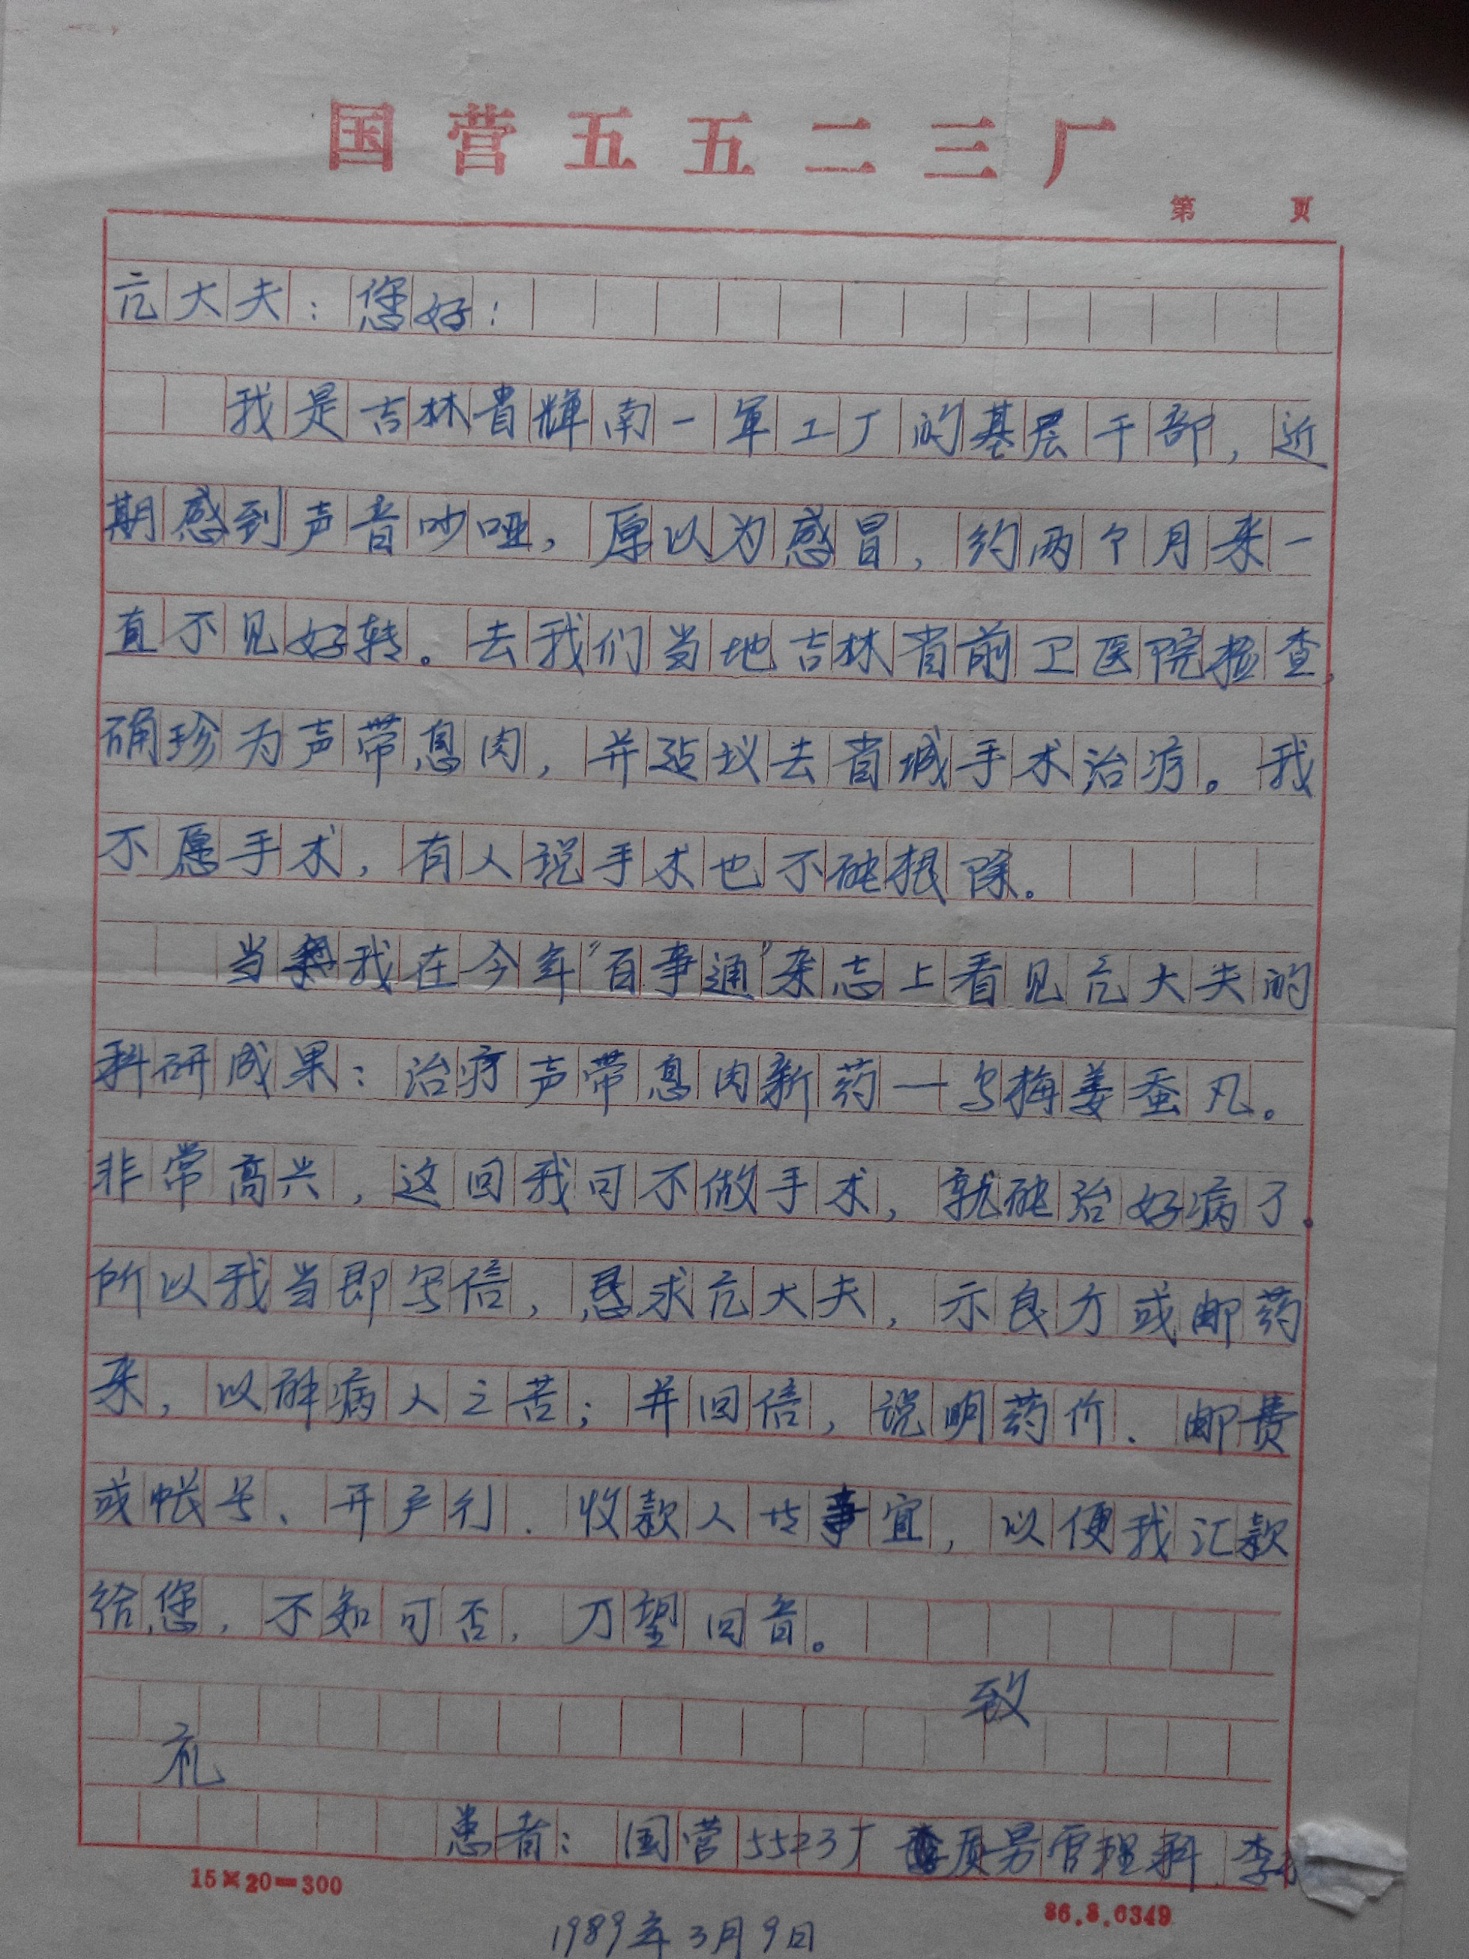 国营五五二三厂
第 页
亢大夫：您好！
我是吉林省辉南一军工厂的基层干部，近
期感到声音吵哑，原以为感冒，约两个月来一
直不见好转。去我们当地吉林省前卫医院检查，
确珍为声带息肉，并建议去省城手术治疗。我
不愿手术，有人说手术也不能根除。
当我在今年"百事通"杂志上看见亢大夫的
科研成果：治疗声带息肉新药一乌梅姜蚕凡。
非常高兴，这回我可不做手术，就能治好病了。
所以我当即写信，恳求亢大夫，示良方或邮药
来，以解病人之苦；并回信，说明药价、邮费
或帐号、开户行、收款人等事宜，以便我汇款
给您，不知可否，万望回音。
致
礼
患者：国营5523厂质量管理科 李
15×20=300
86.8.0349
1989年3月9日